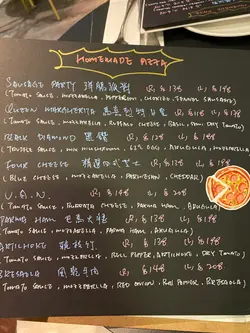 HOMEMADE PIZZA
SAUSAGE PARTY (R) $138 (L) $198
(TOMATO SAUCE, MOZZARELLA, PEPPERONI, CHORIZO, SAUSAGE)
QUEEN MARGHERITA (R) $118 (L) $178
(TOMATO SAUCE, MOZZARELLA, BUFFALO CHEESE, BASIL, DRY TOMATO)
BLACK DIAMOND 黑鑽 (R) $128 (L) $188
(TRUFFLE SAUCE, MIX MUSHROOM, 63°C EGG, ARUGULA, MOZZARELLA)
FOUR CHEESE (R) $138 (L) $198
(BLUE CHEESE, MOZZARELLA, PARMESAN, CHEDDAR)
(R) $148 (L) $208
(TOMATO SAUCE, BURRATA CHEESE, PARMA HAM, ARUGULA)
PARMA HAM 巴馬火腿 (R) $138 (L) $198
(TOMATO SAUCE, MOZZARELLA, PARMA HAM, ARUGULA)
ARTICHOKE (R) $138 (L) $198
(TOMATO SAUCE, MOZZARELLA, BELL PEPPER, ARTICHOKE, DRY TOMATO)
BRESAOLA 風乾牛肉 (R) $148 (L) $208
(TOMATO SAUCE, MOZZARELLA, RED ONION, BELL PEPPER, BRESAOLA)